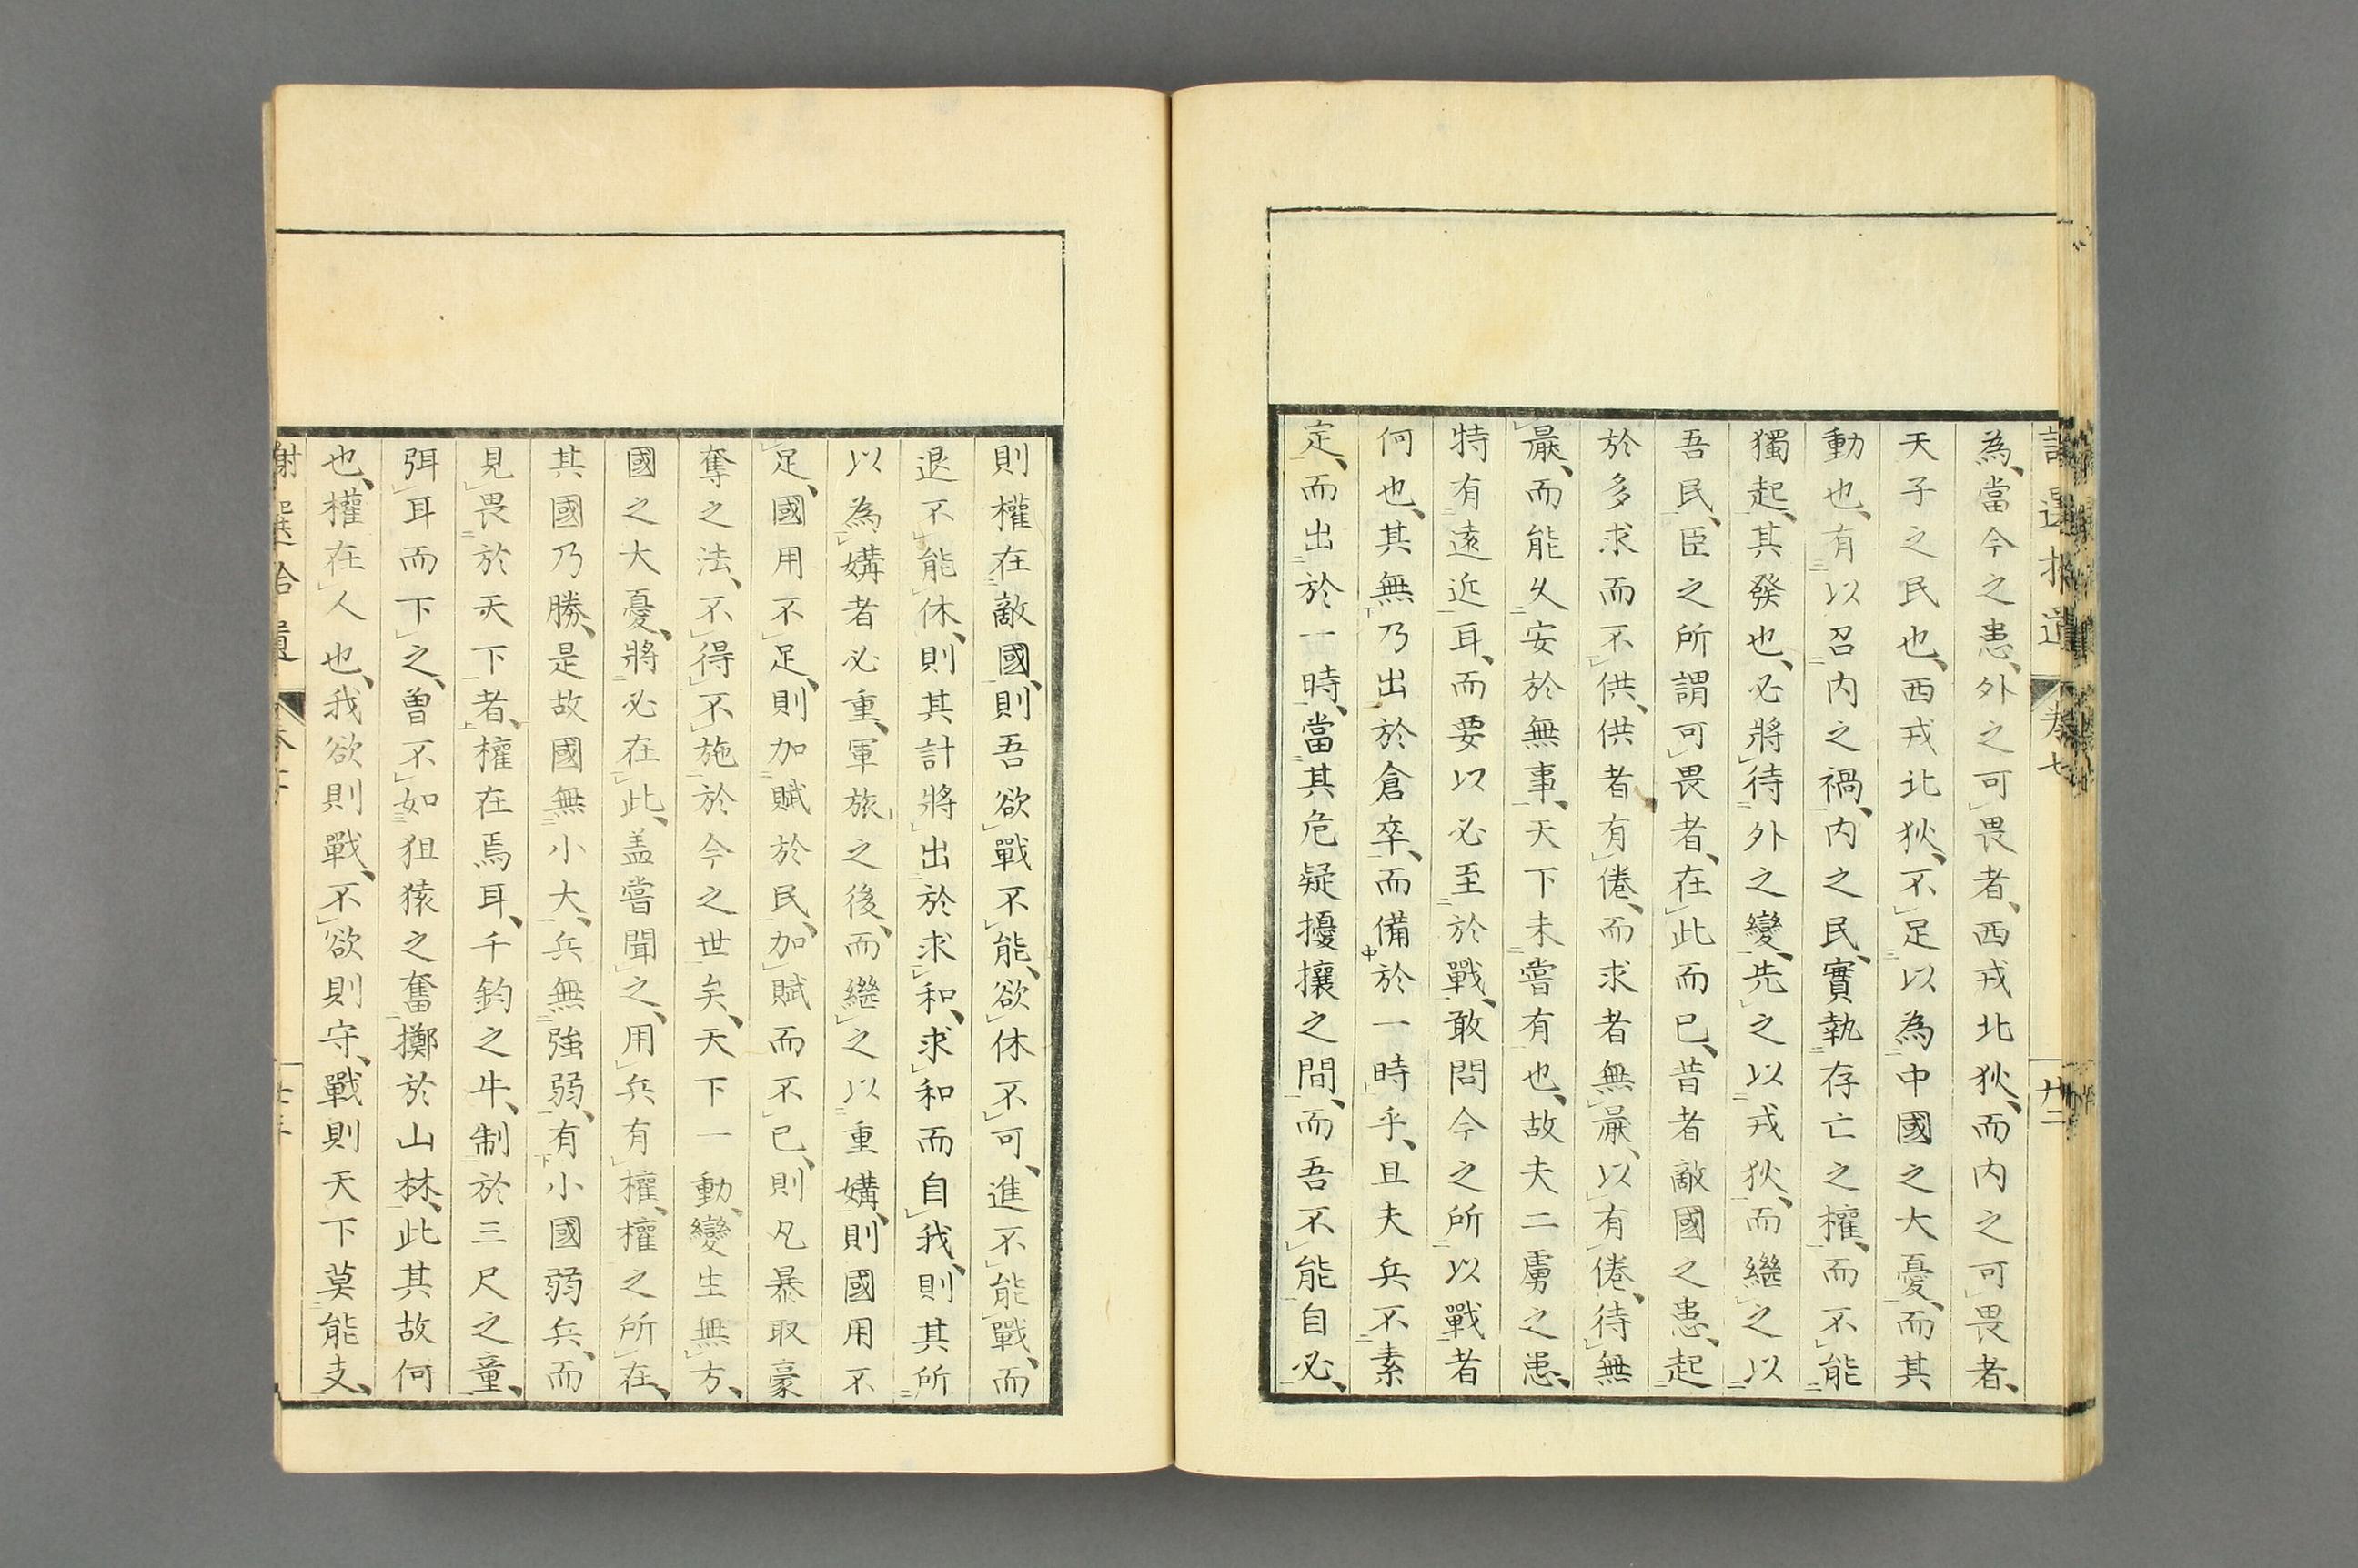 為、當今之患、外之可畏者、西戎北狄、而内之可畏者、
天子之民也、西戎北狄、不足以為中國之大憂、而其
動也、有以召内之禍、内之民、實執存亡之權、而不能
獨起、其發也、必將待外之變、先之以戎狄、而繼之以
吾民、臣之所謂可畏者、在此而已、昔者敵國之患、起
於多求而不供、供者有倦、而求者無厭、以有倦、待無
厭、而能久安於無事、天下未嘗有也、故夫二虜之患、
特有遠近耳、而要以必至於戰、敢問今之所以戰者
何也、其無乃出於倉卒、而備於一時乎、且夫兵不素
定、而出於一時、當其危疑擾攘之間、而吾不能自必、
則權在敵國、則吾欲戰不能、欲休不可、進不能戰、而
退不能休、則其計將出於求和、求和而自我、則其所
以為媾者必重、軍旅之後、而繼之以重媾、則國用不
足、國用不足、則加賦於民、加賦而不已、則凡暴取豪
奪之法、不得不施於今之世矣、天下一動、變生無方、
國之大憂、將必在此、盖嘗聞之、用兵有權、權之所在、
其國乃勝、是故國無小大、兵無強弱、有小國弱兵、而
見畏於天下者、權在焉耳、千鈞之牛、制於三尺之童、
弭耳而下之、曾不如狙猿之奮擲於山林、此其故何
也、權在人也、我欲則戰、不欲則守、戰則天下莫能支、